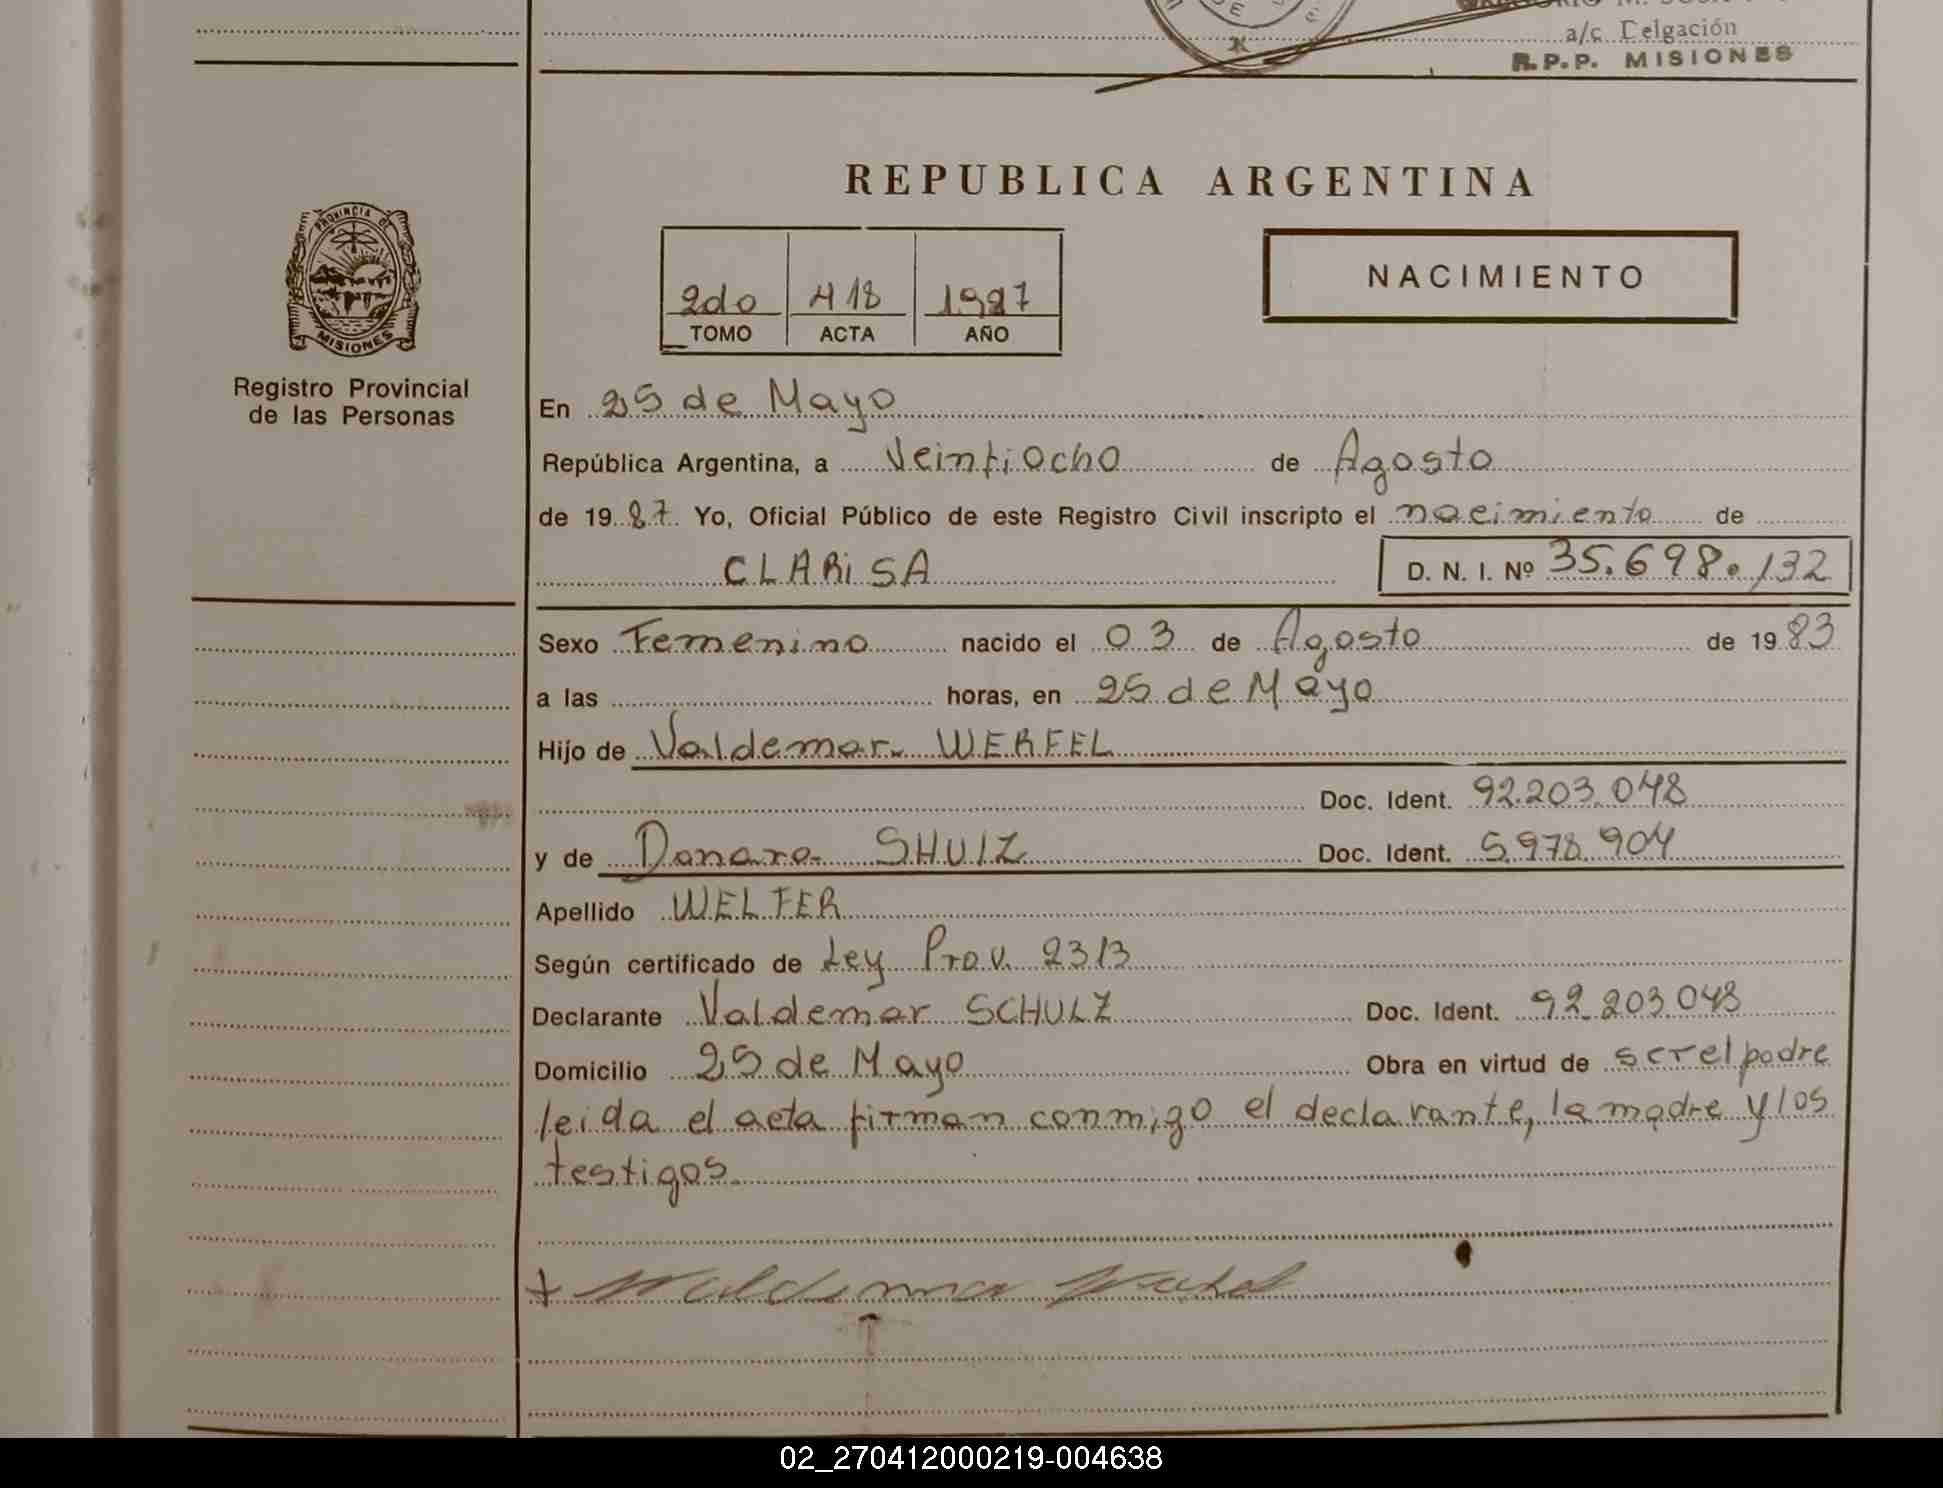 a/c Delgación
R.P.P. MISIONES
REPUBLICA ARGENTINA
PROVINCIA DE
MISIONES
Registro Provincial
de las Personas
2do 418 1987
TOMO ACTA AÑO
NACIMIENTO
En 25 de Mayo
República Argentina, a Veintiocho de Agosto
de 1987 Yo, Oficial Público de este Registro Civil inscripto el nacimiento de
CLARiSA D. N. I. Nº 35.698.132
Sexo Femenino nacido el 03 de Agosto de 1983
a las horas, en 25 de Mayo
Hijo de Valdemar WERFEL
Doc. Ident. 92.203.048
y de Danara SHUlZ Doc. Ident. 5.978.904
Apellido WELFER
Según certificado de Ley Prov. 2313
Declarante Valdemar SCHULZ Doc. Ident. 92.203.048
Domicilio 25 de Mayo Obra en virtud de ser el padre
leida el acta firman conmigo el declarante, la madre y los
testigos.
02_270412000219-004638